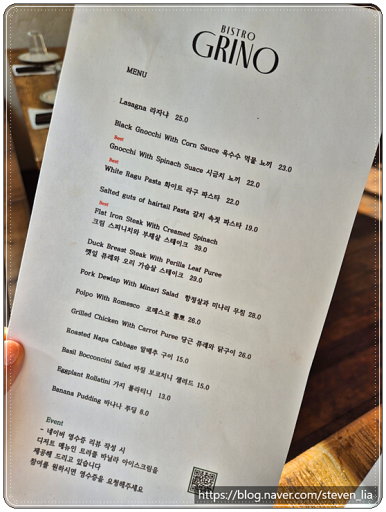 BISTRO
GRINO
MENU
Lasagna 라자냐 25.0
Black Gnocchi With Corn Sauce 옥수수 먹물 뇨끼 23.0
Best
Gnocchi With Spinach Suace 시금치 뇨끼 22.0
Best
White Ragu Pasta 화이트 라구 파스타 22.0
Salted guts of hairtail Pasta 갈치 속젓 파스타 19.0
Best
Flat Iron Steak With Creamed Spinach
크림 스피니치와 부채살 스테이크 39.0
Duck Breast Steak With Perilla Leaf Puree
깻잎 퓨레와 오리 가슴살 스테이크 29.0
Pork Dewlap With Minari Salad 항정살과 미나리 무침 28.0
Polpo With Romesco 로메스코 뽈뽀 26.0
Grilled Chicken With Carrot Puree 당근 퓨레와 닭구이 26.0
Roasted Napa Cabbage 알배추 구이 15.0
Basil Bocconcini Salad 바질 보코치니 샐러드 15.0
Eggplant Rollatini 가지 롤라티니 13.0
Banana Pudding 바나나 푸딩 8.0
Event
- 네이버 영수증 리뷰 작성 시
디저트 메뉴인 트러플 바닐라 아이스크림을
제공해 드리고 있습니다
참여를 원하시면 영수증을 요청해주세요
https://blog.naver.com/steven_lia